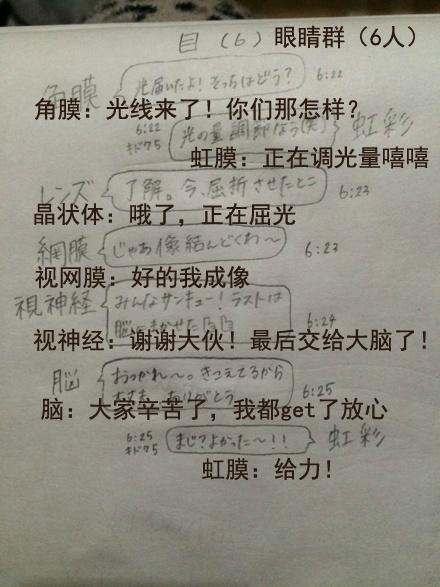 目（6）眼睛群（6人）
角膜 光届いたよ！そっちはどう？ 6:22
角膜：光线来了！你们那怎样？
6:22 キドク5 光の量調節なう(笑) 虹彩
虹膜：正在调光量嘻嘻
レンズ 了解。今、屈折させたとこ 6:23
晶状体：哦了，正在屈光
網膜 じゃあ像結んどくわ〜 6:23
视网膜：好的我成像
視神経 みんなサンキュー！ラストは
脳にまかせた 6:24
视神经：谢谢大伙！最后交给大脑了！
脳 おつかれ〜。きこえてるから
ありがとう 6:25
脑：大家辛苦了，我都get了放心
6:25 キドク5 まじ？よかった〜！！ 虹彩
虹膜：给力！